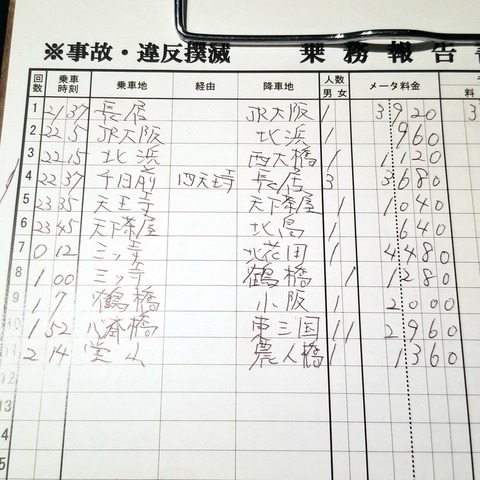 ※事故・違反撲滅 乗務報告書
回数 乗車時刻 乗車地 経由 降車地 人数 男 女 メータ料金 料
1 21 37 長居 JR大阪 1 3920 3
2 22 5 JR大阪 北浜 1 960
3 22 15 北浜 西大橋 1 1120
4 22 37 千日前 四天王寺 長居 3 3680
5 23 35 天王寺 天下茶屋 1 1040
6 23 45 天下茶屋 北島 1 640
7 0 12 三ッ寺 北花田 1 4480
8 1 00 三ッ寺 鶴橋 1 1280
9 1 7 鶴橋 小阪 1 2000
10 1 52 心斎橋 東三国 1 1 2960
11 2 14 堂山 農人橋 1 1360
12
13
14
15